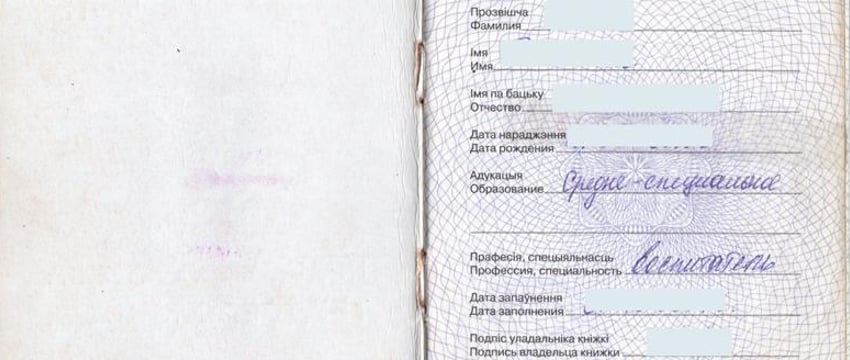 Прозвішча
Фамилия
Імя
Имя
Імя па бацьку
Отчество
Дата нараджэння
Дата рождения
Адукацыя
Образование средне-специальное
Прафесія, спецыяльнасць
Профессия, специальность воспитатель
Дата запаўнення
Дата заполнения
Подпіс уладальніка кніжкі
Подпись владельца книжки